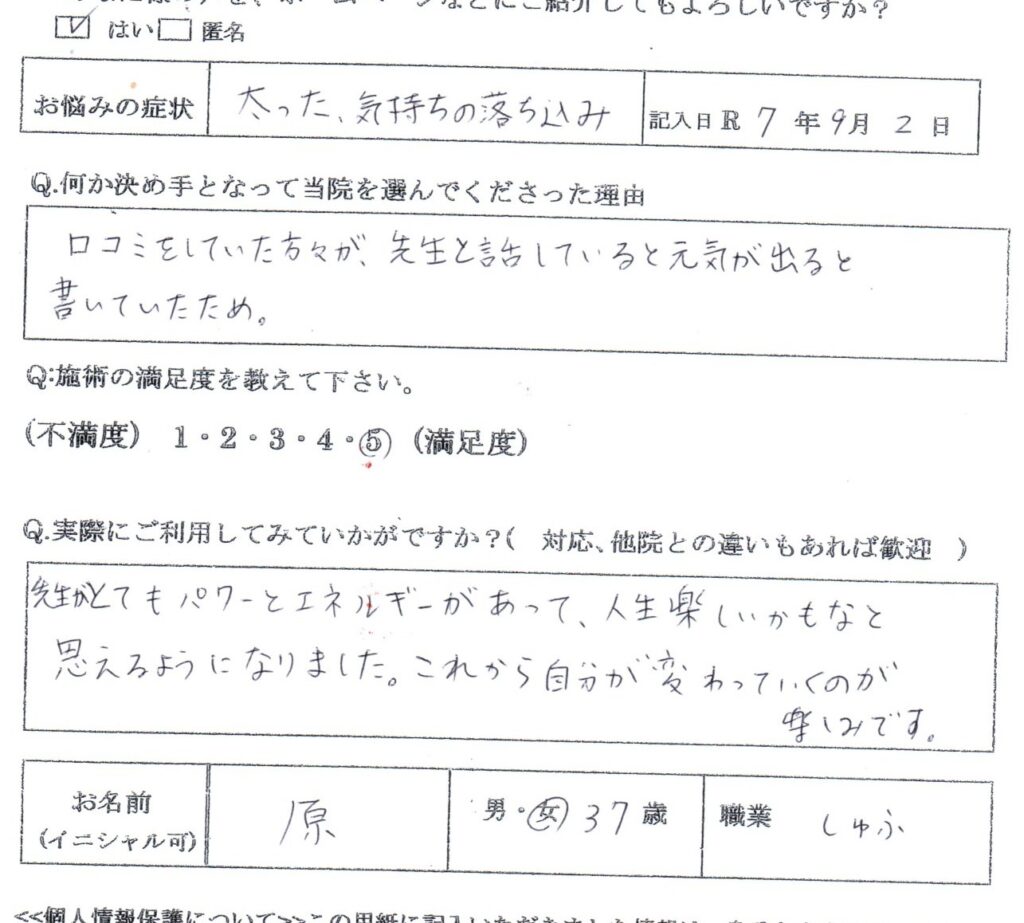 をホームページなどにご紹介してもよろしいですか？
☑ はい □ 匿名
お悩みの症状 太った、気持ちの落ち込み 記入日 R 7 年 9 月 2 日
Q.何か決め手となって当院を選んでくださった理由
口コミをしていた方々が、先生と話していると元気が出ると
書いていたため。
Q:施術の満足度を教えて下さい。
（不満度） 1・2・3・4・⑤ （満足度）
Q.実際にご利用してみていかがですか？( 対応、他院との違いもあれば歓迎 )
先生がとてもパワーとエネルギーがあって、人生楽しいかもなと
思えるようになりました。これから自分が変わっていくのが
楽しみです。
お名前 原 男・女 37 歳 職業 しゅふ
(イニシャル可)
<<個人情報保護について>>この用紙に記入いただきました情報は、